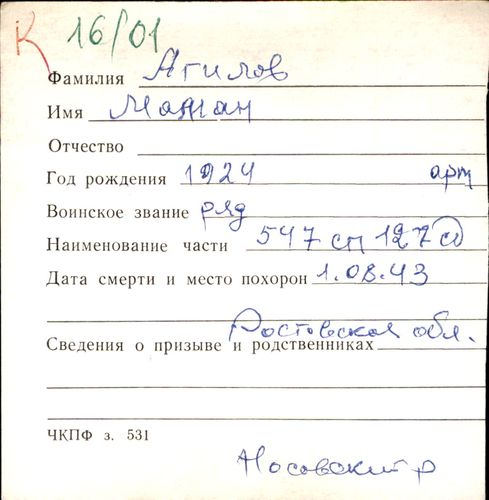 К 16/01
Фамилия Агилов
Имя Мажан
Отчество
Год рождения 1924 арт
Воинское звание ряд
Наименование части 547 сп 127 сд
Дата смерти и место похорон 1.08.43
Ростовская обл.
Сведения о призыве и родственниках
ЧКПФ з. 531
Носовский р